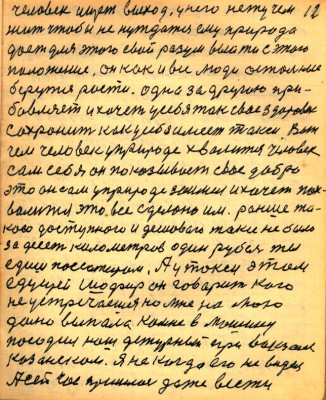 человек ищет выход, у него нету чем 12
жить чтоби не нуждатся ему природа
дает для этого свой разум выйти с этого
положение, он как и все люди остальные
берутся рости. одна за другою при-
бовляет и хочет у себя так свое здоровье
сохранить как у себя имеет такси. Вот
чем человек у природе хвалится человек
сам себя, он показывает свое добро
это он сам у природе занимел и хочет пох-
валится это все сделоно им. раньше та-
кого доступного и дешового такси не было
за десет километров один рубель ты
едиш пассажиром. А у токси этом
едущей шофер он говарит кого
не устречается но мне на мого
дано выпала ко мне в машину
посодил наш дежурный при вакзале
казанском. Я не когда его не видел
А сей час пришлос даже вести